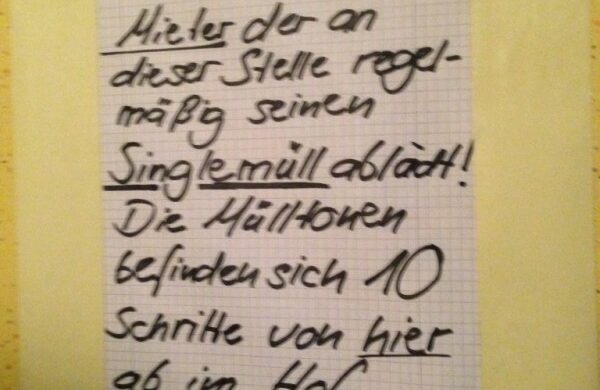 Mieter der an
dieser Stelle regel-
mäßig seinen
Singlemüll ablädt!
Die Mülltonen
befinden sich 10
Schritte von hier
ab im Hof